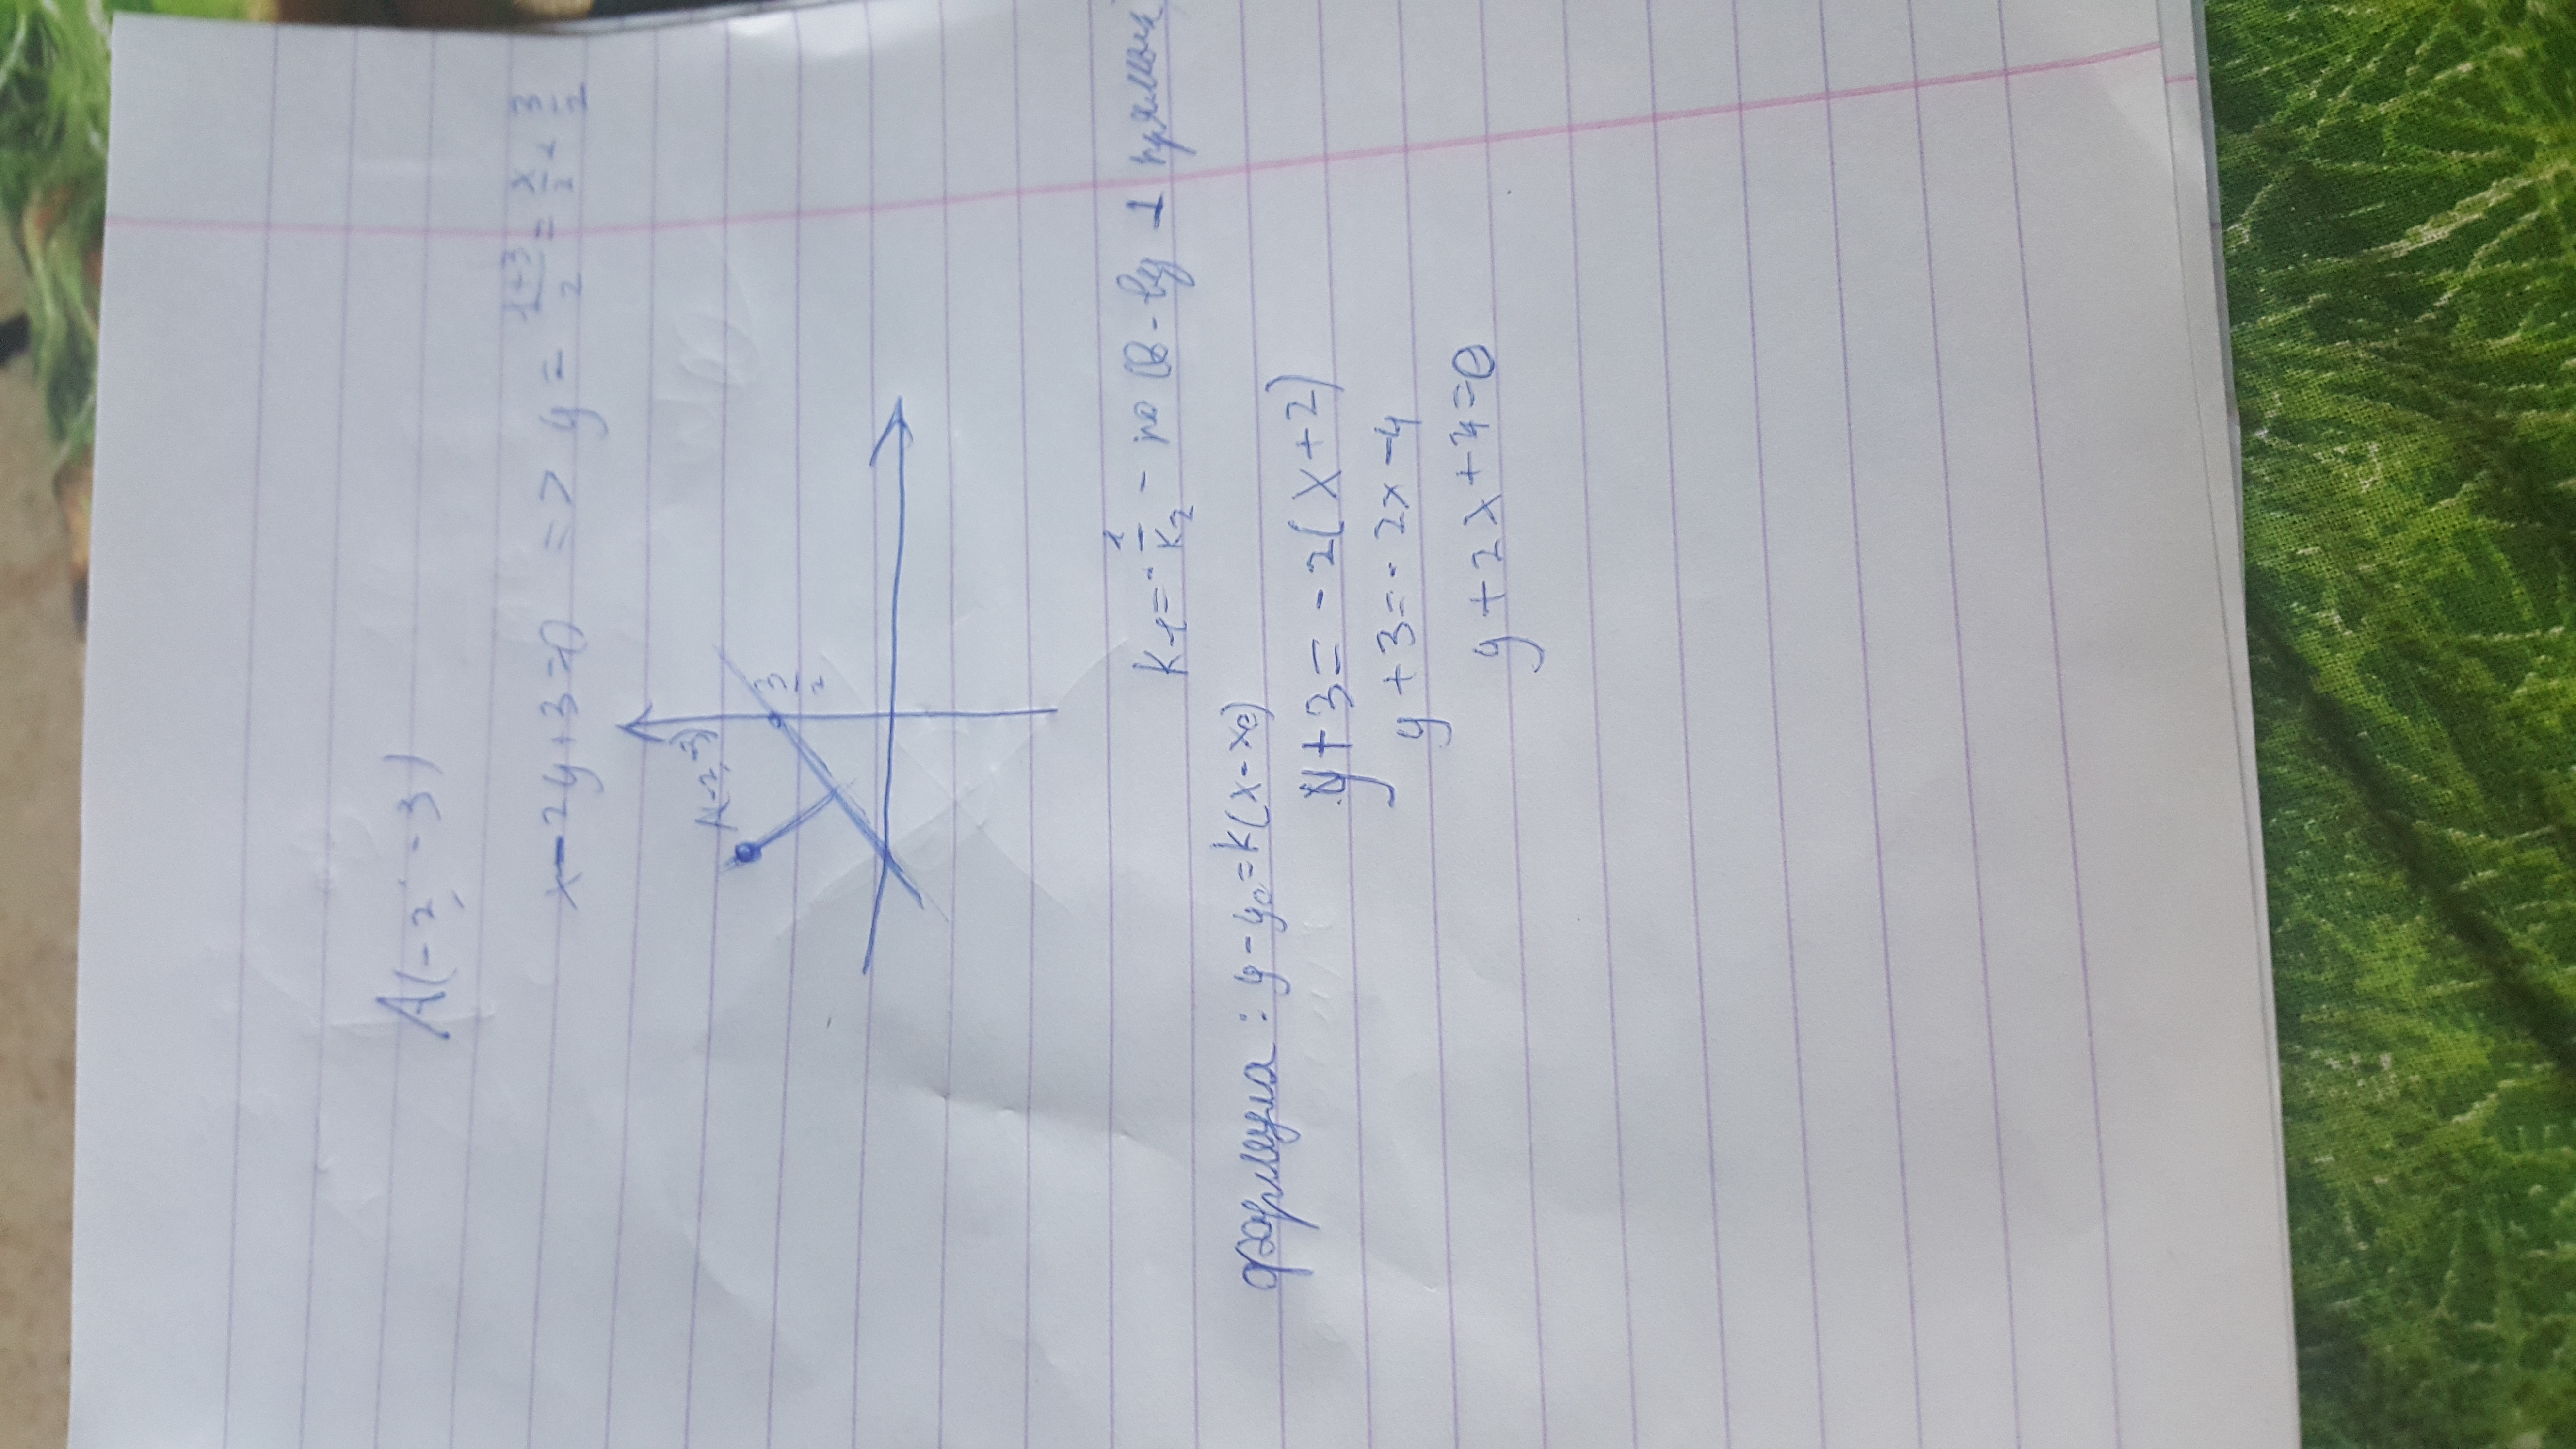 A(-2, -3)
x-2y+3=0 => y = \frac{1+3}{2} = \frac{x}{2} + \frac{3}{2}
A(-2,-3)
\frac{3}{2}
K_1 = -\frac{1}{K_2} - по св-ву ⊥ прямых
формула: y-y_0=k(x-x_0)
y+3=-2(x+2)
y+3=-2x-4
y+2x+4=0